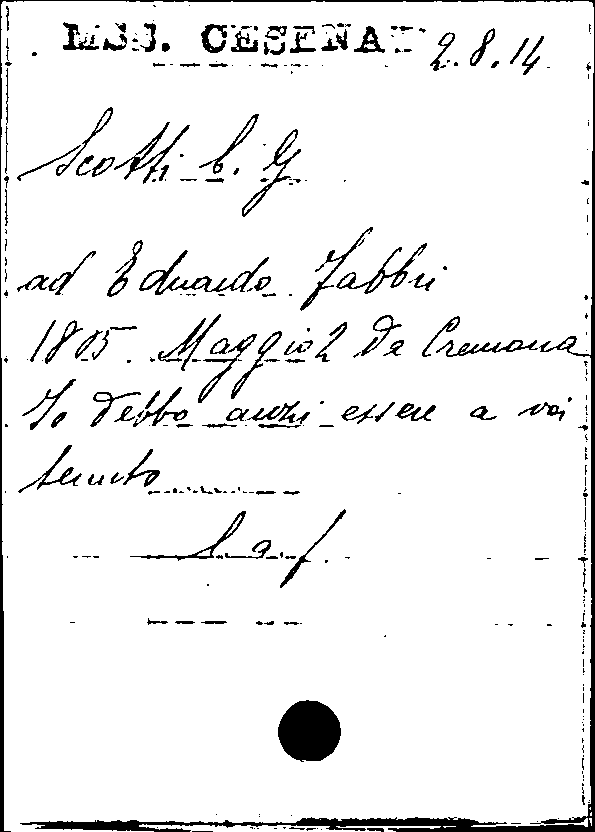 MSS. CESENATI 2.8.14
Scotti C. G
ad Eduardo Fabbri
1805. Maggio 2 Da Cremona
Io debbo anzi essere a voi
tenuto
L. a. f.